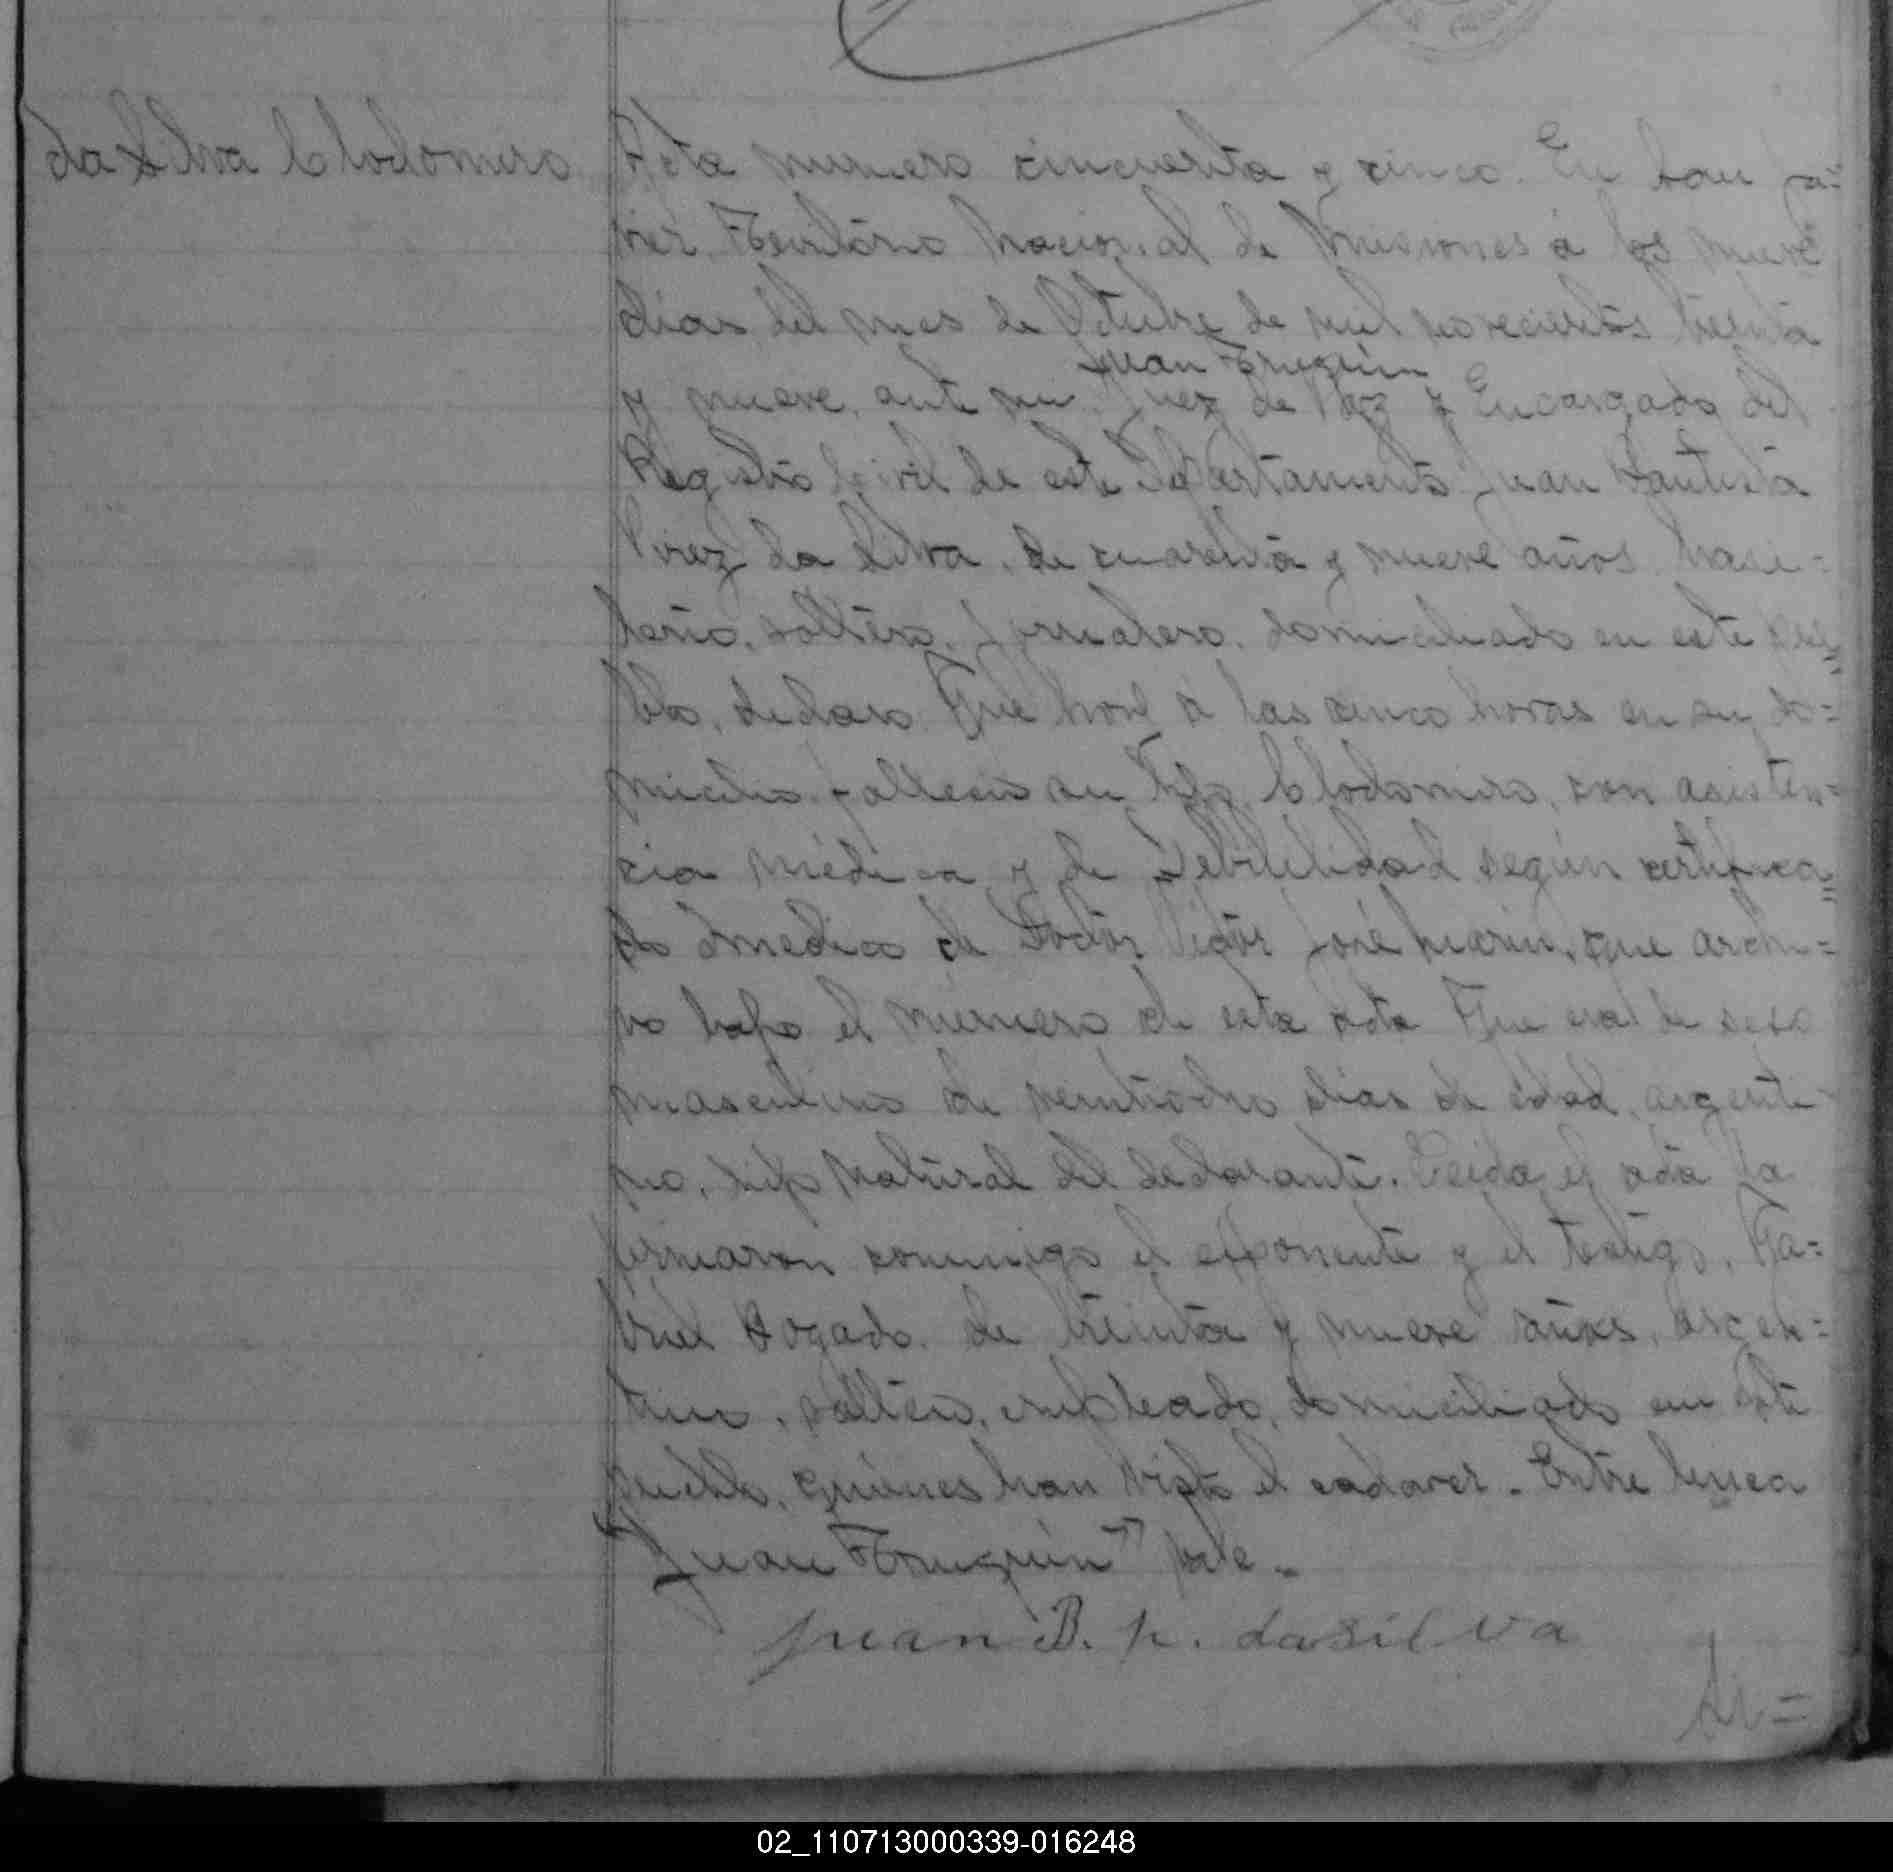 da Silva Clodomiro
Acta numero cincuenta y cinco. En San Ja=
vier, Territorio Nacional de Misiones á los nueve
dias del mes de Octubre de mil novecientos treinta
Juan Truquin
y nueve, ante mi, Juez de Paz y Encargado del
Registro Civil de este Departamento Juan Bautista
Pirez da Silva, de cuarenta y nueve años, brasi=
leño, soltero, jornalero, domiciliado en este pue=
blo, declaro: Que hoy á las cinco horas en su do=
micilio fallecio su hijo Clodomiro, con asisten=
cia médica y de Debilidad según certifica=
do medico de Doctor José que archi=
vo bajo el número de esta acta Que era de sexo
masculino de veintiocho dias de edad, argenti
no, hijo natural del declarante. Leida el acta la
firmaron conmigo el exponente y el testigo, Ga=
briel Bogado, de treinta y nueve años, argen=
tino, soltero, empleado, domiciliado en este
pueblo, quienes han visto el cadaver. - Entre linea
"Juan Truquin" vale. -
Juan B. p. dasilva
02_110713000339-016248